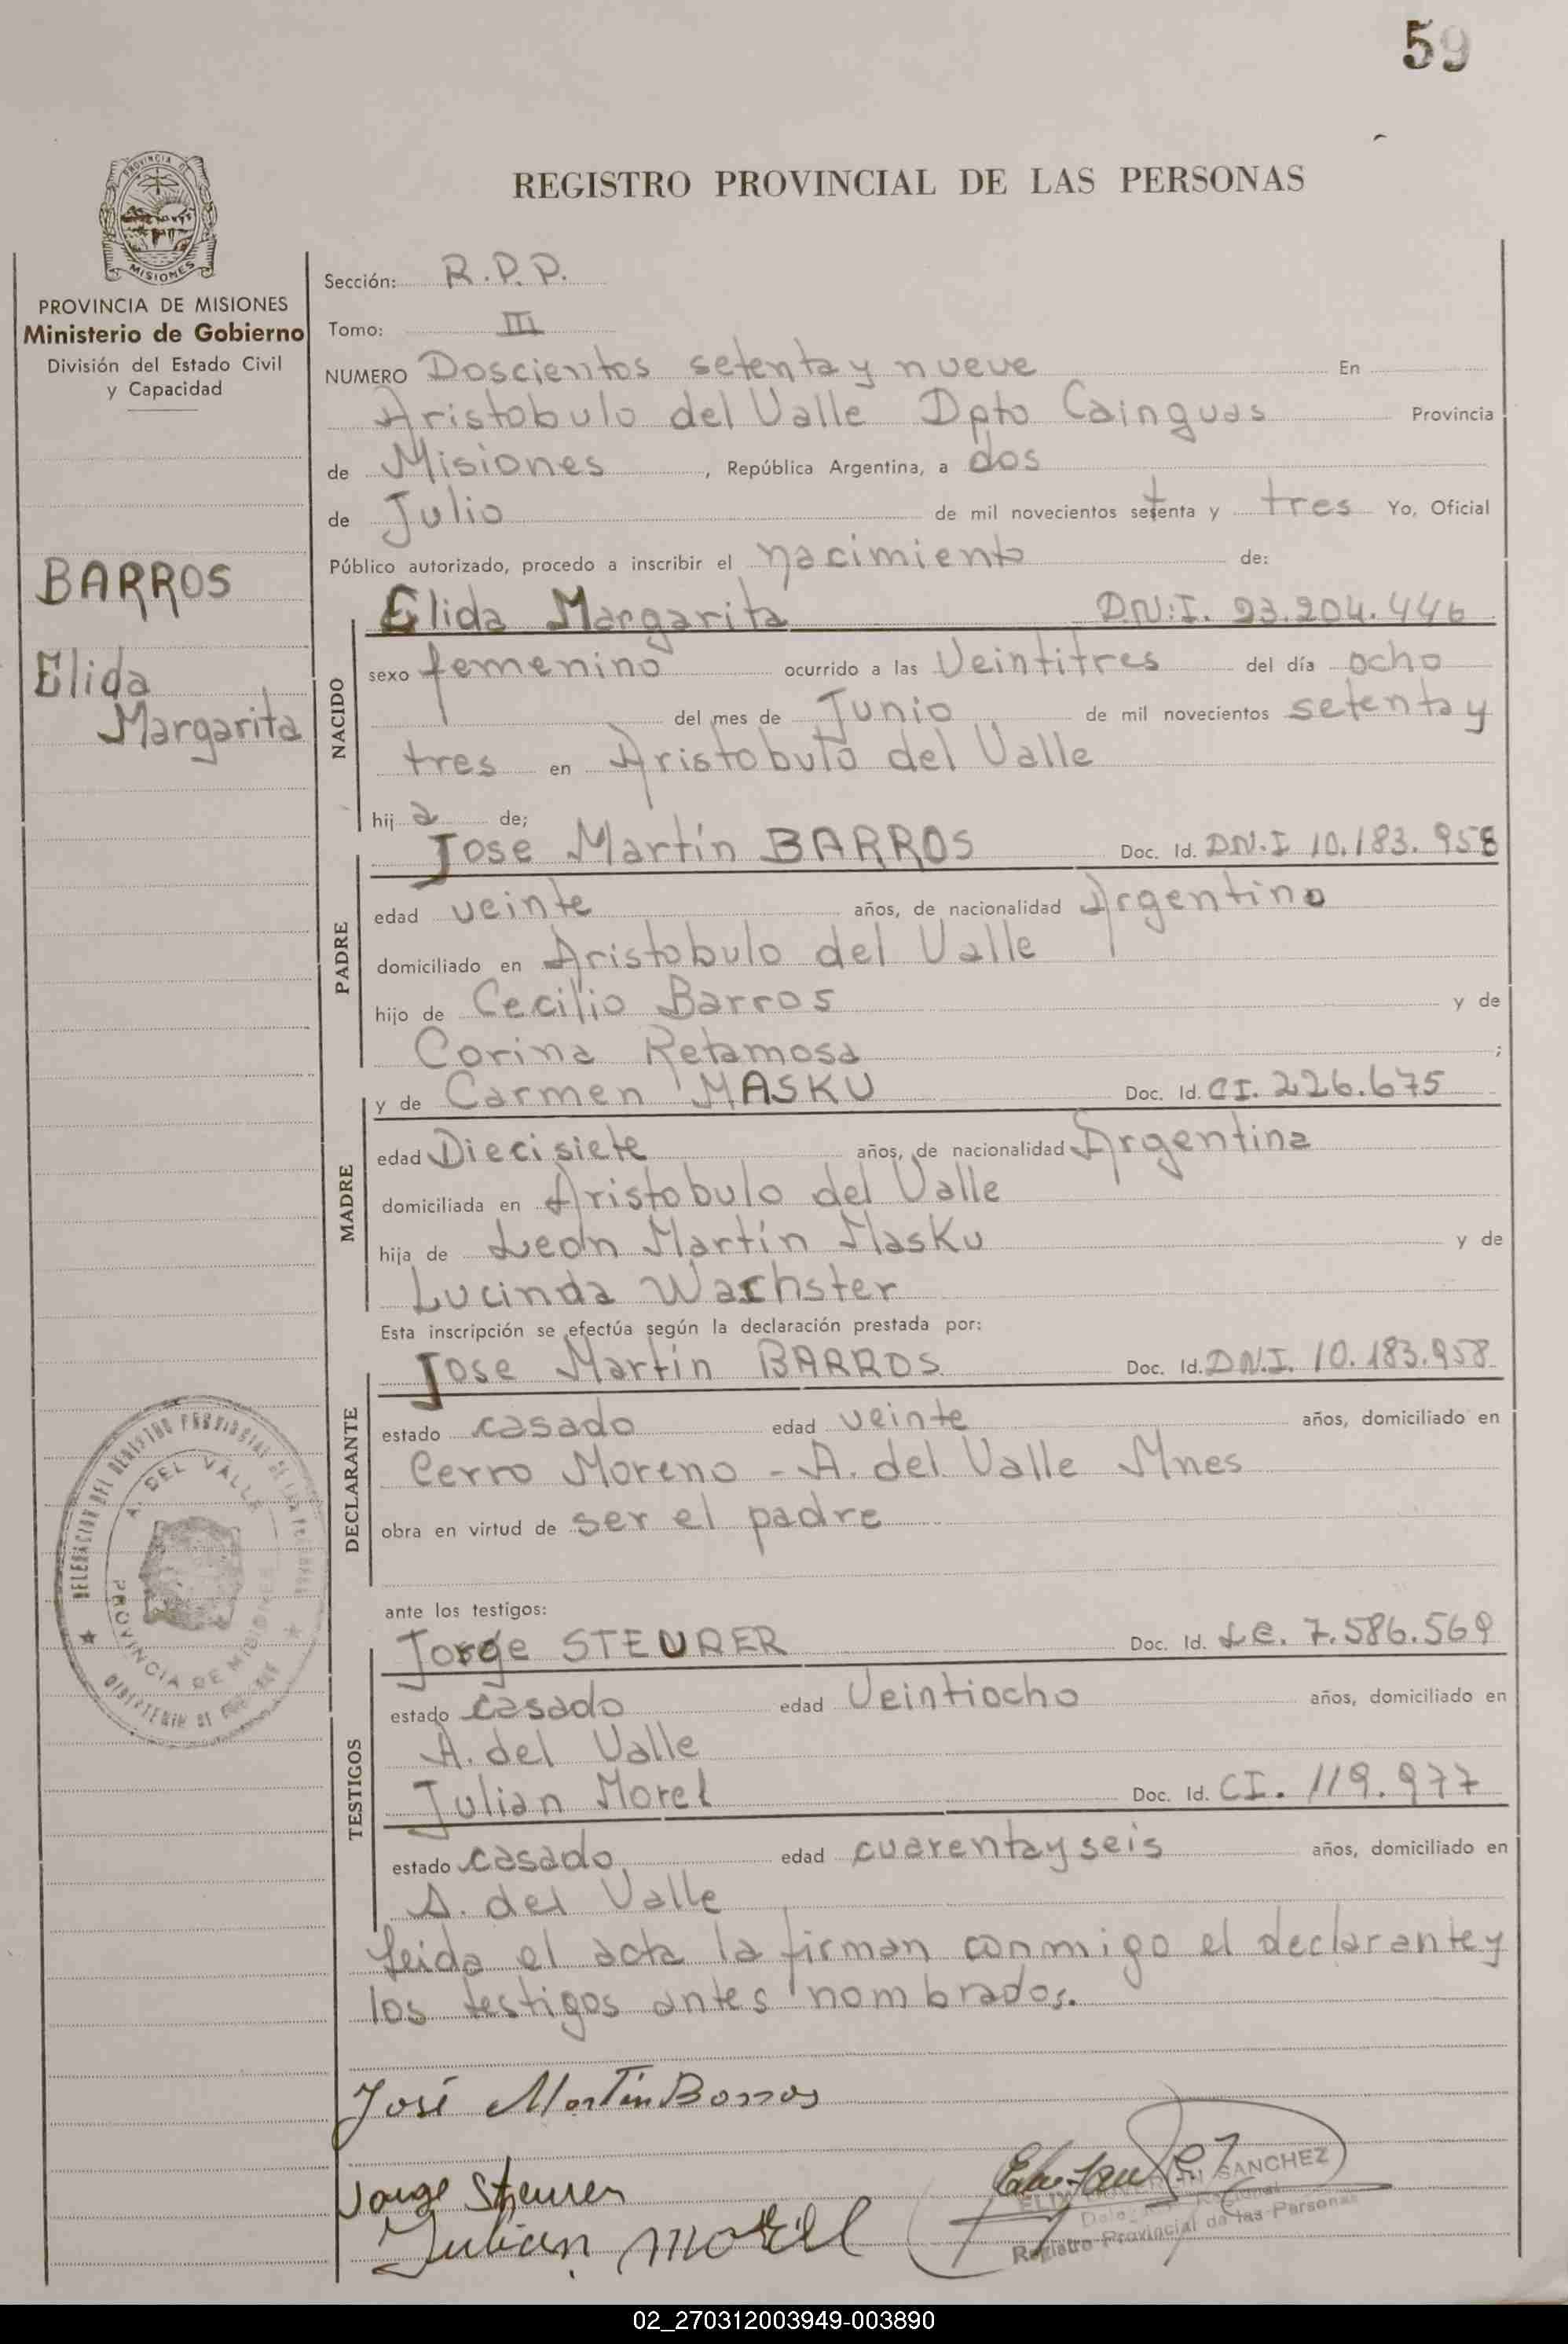 59
REGISTRO PROVINCIAL DE LAS PERSONAS
PROVINCIA DE
MISIONES
PROVINCIA DE MISIONES
Ministerio de Gobierno
División del Estado Civil
y Capacidad
BARROS
Elida
Margarita
Sección: R.P.P.
Tomo: III
NUMERO Doscientos setenta y nueve En
Aristobulo del Valle Dpto Cainguas Provincia
de Misiones, República Argentina, a dos
de Julio de mil novecientos setenta y tres Yo, Oficial
Público autorizado, procedo a inscribir el nacimiento de:
Elida Margarita D.N.I. 23.204.446
NACIDO
sexo femenino ocurrido a las Veintitres del día ocho
del mes de Junio de mil novecientos setenta y
tres en Aristobulo del Valle
hij a de;
Jose Martín BARROS Doc. Id. D.N.I 10.183.958
PADRE
edad veinte años, de nacionalidad Argentino
domiciliado en Aristobulo del Valle
hijo de Cecilio Barros y de
Corina Retamosa ;
y de Carmen MASKU Doc. Id. CI. 226.675
MADRE
edad Diecisiete años, de nacionalidad Argentina
domiciliada en Aristobulo del Valle
hija de Leon Martín Masku y de
Lucinda Wachster
Esta inscripción se efectúa según la declaración prestada por:
Jose Martín BARROS Doc. Id. D.N.I. 10.183.958
DECLARANTE
estado casado edad veinte años, domiciliado en
Cerro Moreno - A. del Valle Mnes
obra en virtud de ser el padre
ante los testigos:
Jorge STEURER Doc. Id. L.E. 7.586.569
TESTIGOS
estado casado edad Veintiocho años, domiciliado en
A. del Valle
Julian Morel Doc. Id. CI. 119.977
estado casado edad cuarenta y seis años, domiciliado en
A. del Valle
Leida el acta la firman conmigo el declarante y
los testigos antes nombrados.
DELEGACION DEL REGISTRO PROVINCIAL DE LAS PERSONAS
A. DEL VALLE
PROVINCIA DE MISIONES
José Martín Barros
Jorge Steurer
Julian Morel
SANCHEZ
Registro Provincial de las Personas
02_270312003949-003890